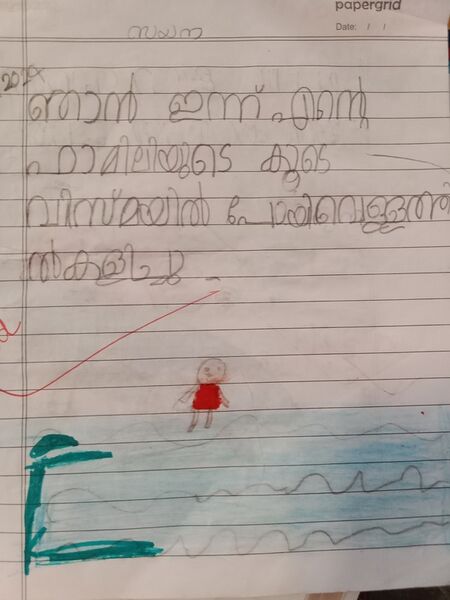 papergrid
Date: / /
സഫ്ന
ഞാൻ ഇന്ന് എൻ്റെ
ഫാമിലിയുടെ കൂടെ
വിസ്മയിൽ പോയിവെള്ളത്തി
ൽകളിച്ചു.